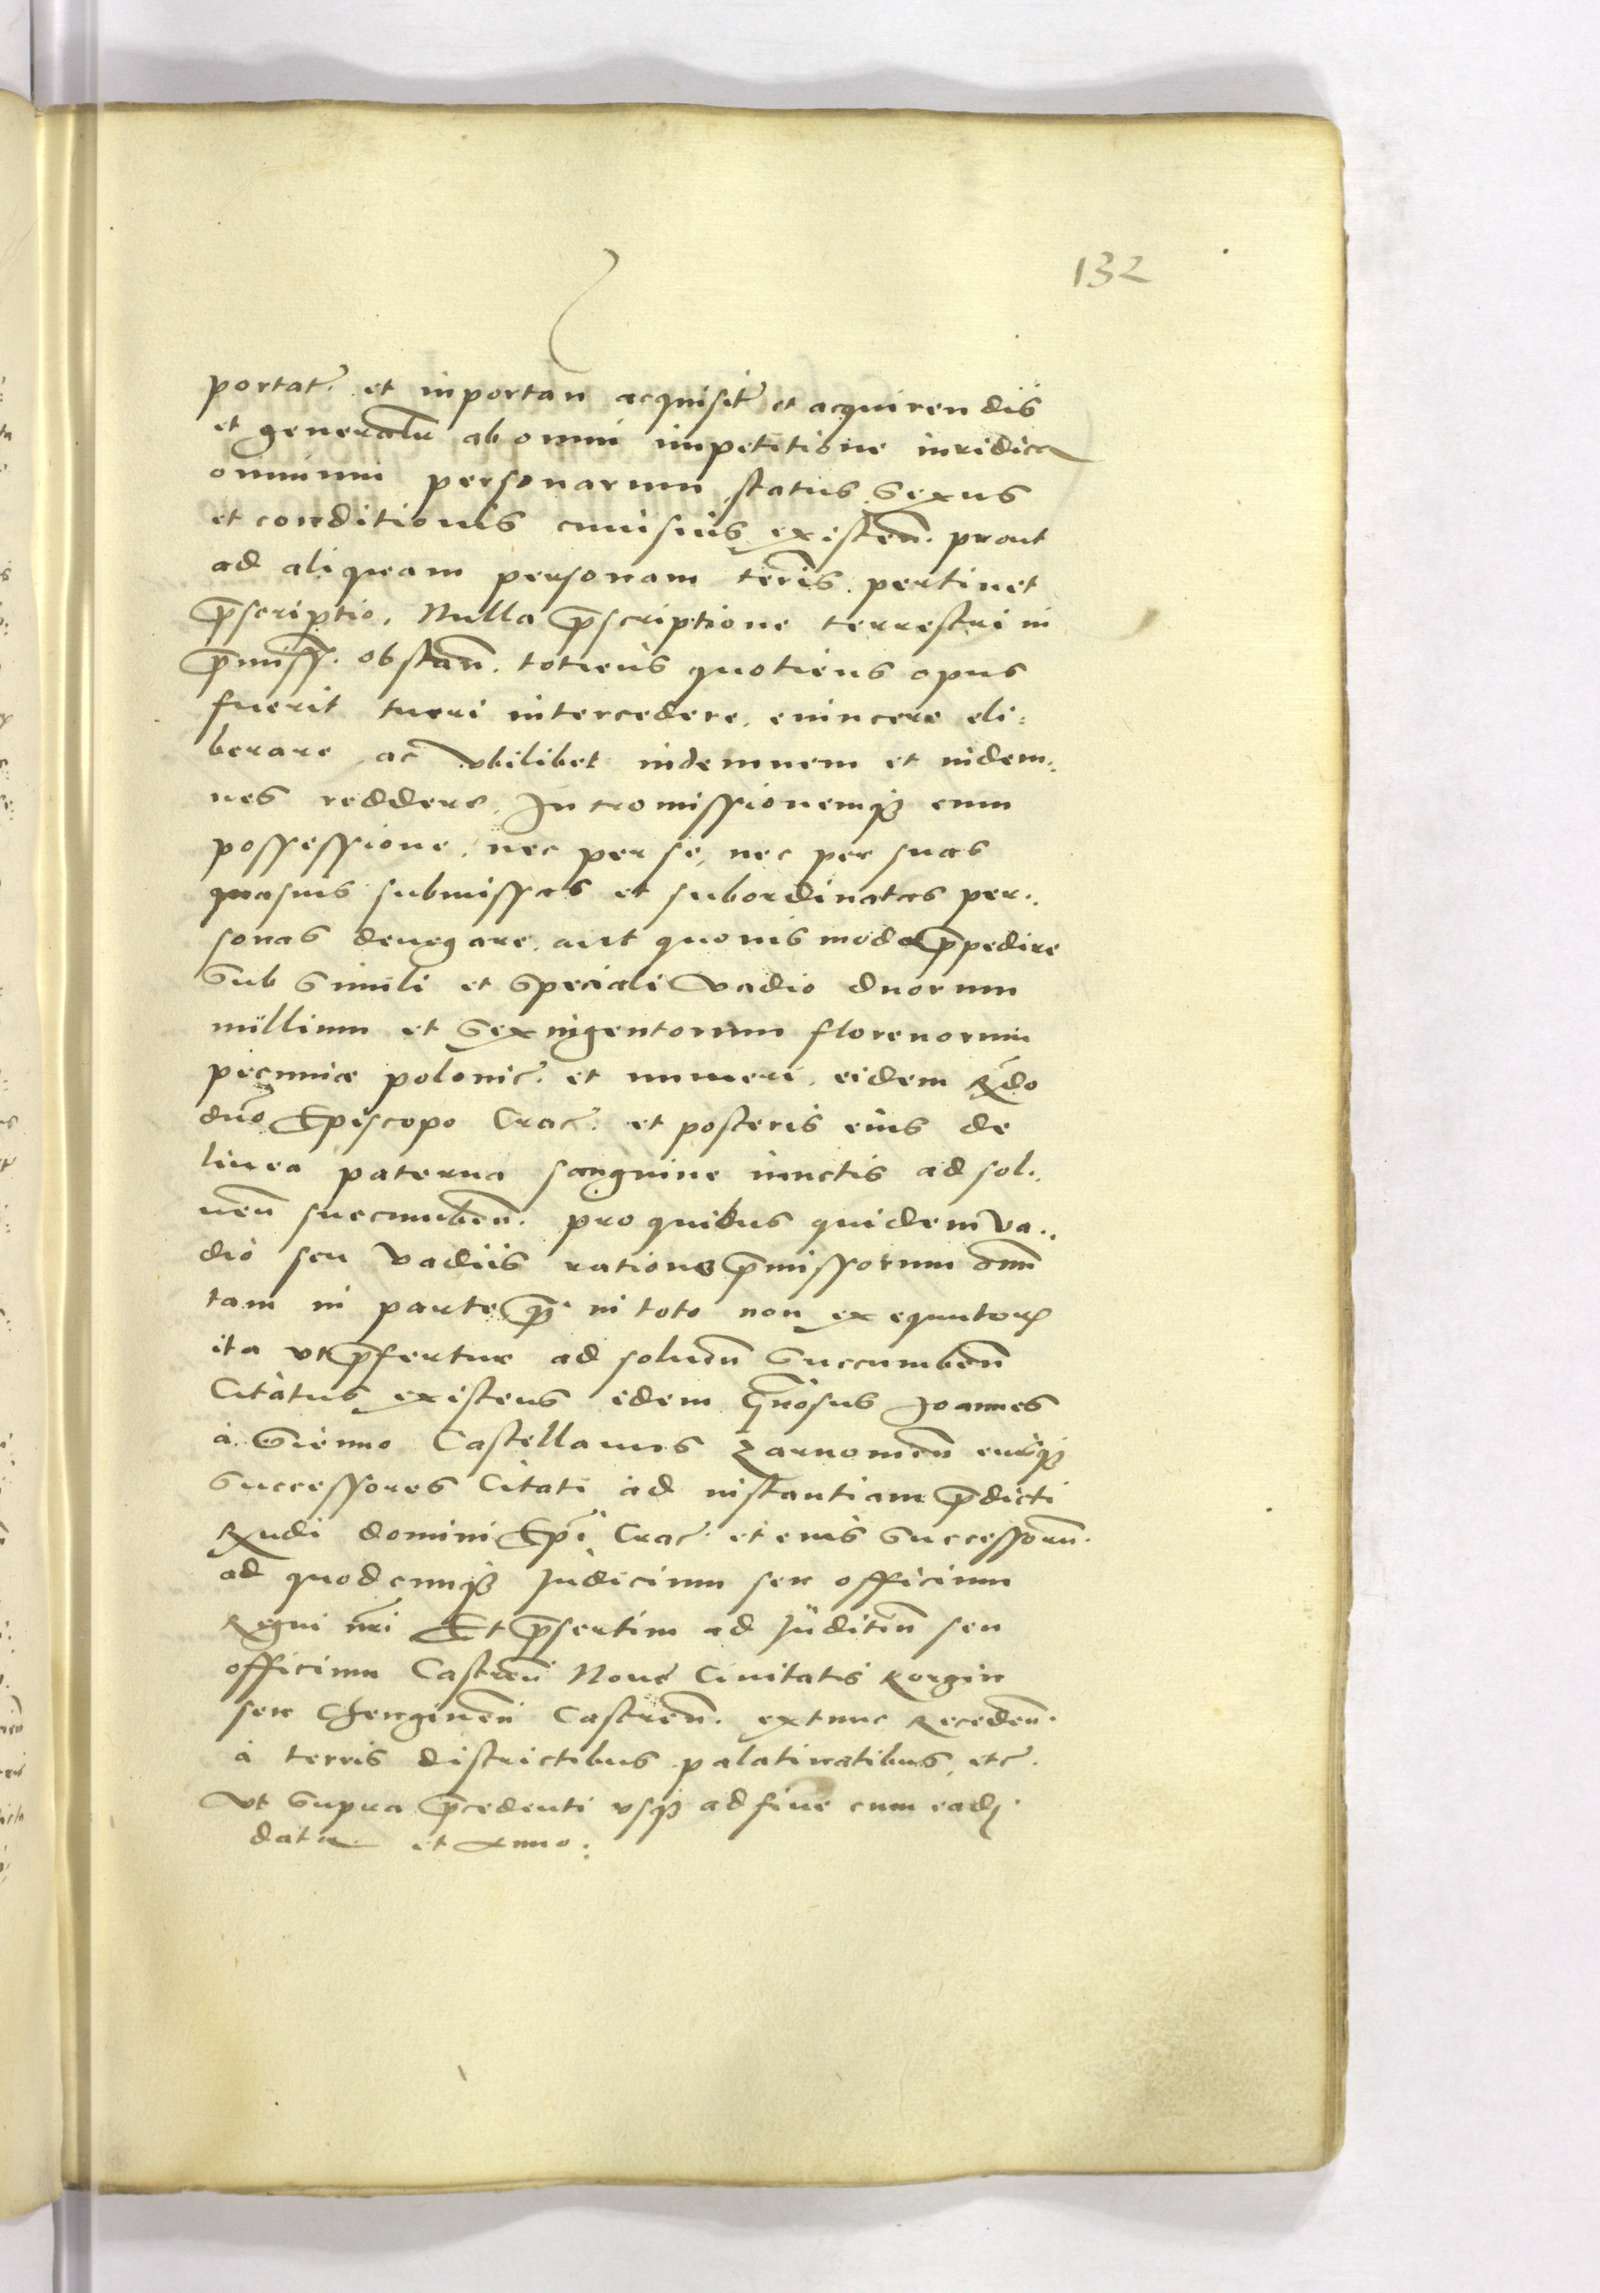 132
portat. et inportan acquisit. et acquirendis
et generalr ab omni impetitione iuridica
omnium personarum status sexus
et conditionis cuiusuis existen. prout
ad aliquam personam terris pertinet
prescriptio. Nulla prescriptione terrestri in
premiss. obstan. totiens quotiens opus
fuerit tueri intercedere, euincere eli:
berare ac vbilibet indemnem et indem:
nes reddere. Intromissionemq cum
possessione, nec per se, nec per suas
quasuis submissas et subordinatas per:
sonas denegare, aut quouis modo prepedire
Sub simili et speciali vadio duorum
millium et sexingentorum florenorum
pecuniæ polonic. et numeri, eidem Rdo
dno Episcopo Crac. et posteris eius de
linea paterna sanguine iunctis ad sol:
uen succumben. pro quibus quidem va:
dio seu vadiis ratione premissorum omn
tam in parte q in toto non exequutor
ita vt prefertur ad soluen succumben
Citatus existens idem Gnosus Joannes
à Sienno Castellanus Zarnouien eiusq
successores Citati ad instantiam predicti
Rndi domini Epi Crac. et eius successorum.
ad quodcunq Judicium seu officium
Regni nri Et presertim ad Juditiu seu
officium Castren Noue Ciuitatis Korgin
seu Chenginen Castren. extunc Receden.
à terris districtibus palatinatibus etc.
Vt supra precedenti vsq ad fine cum ead.
data et Anno.